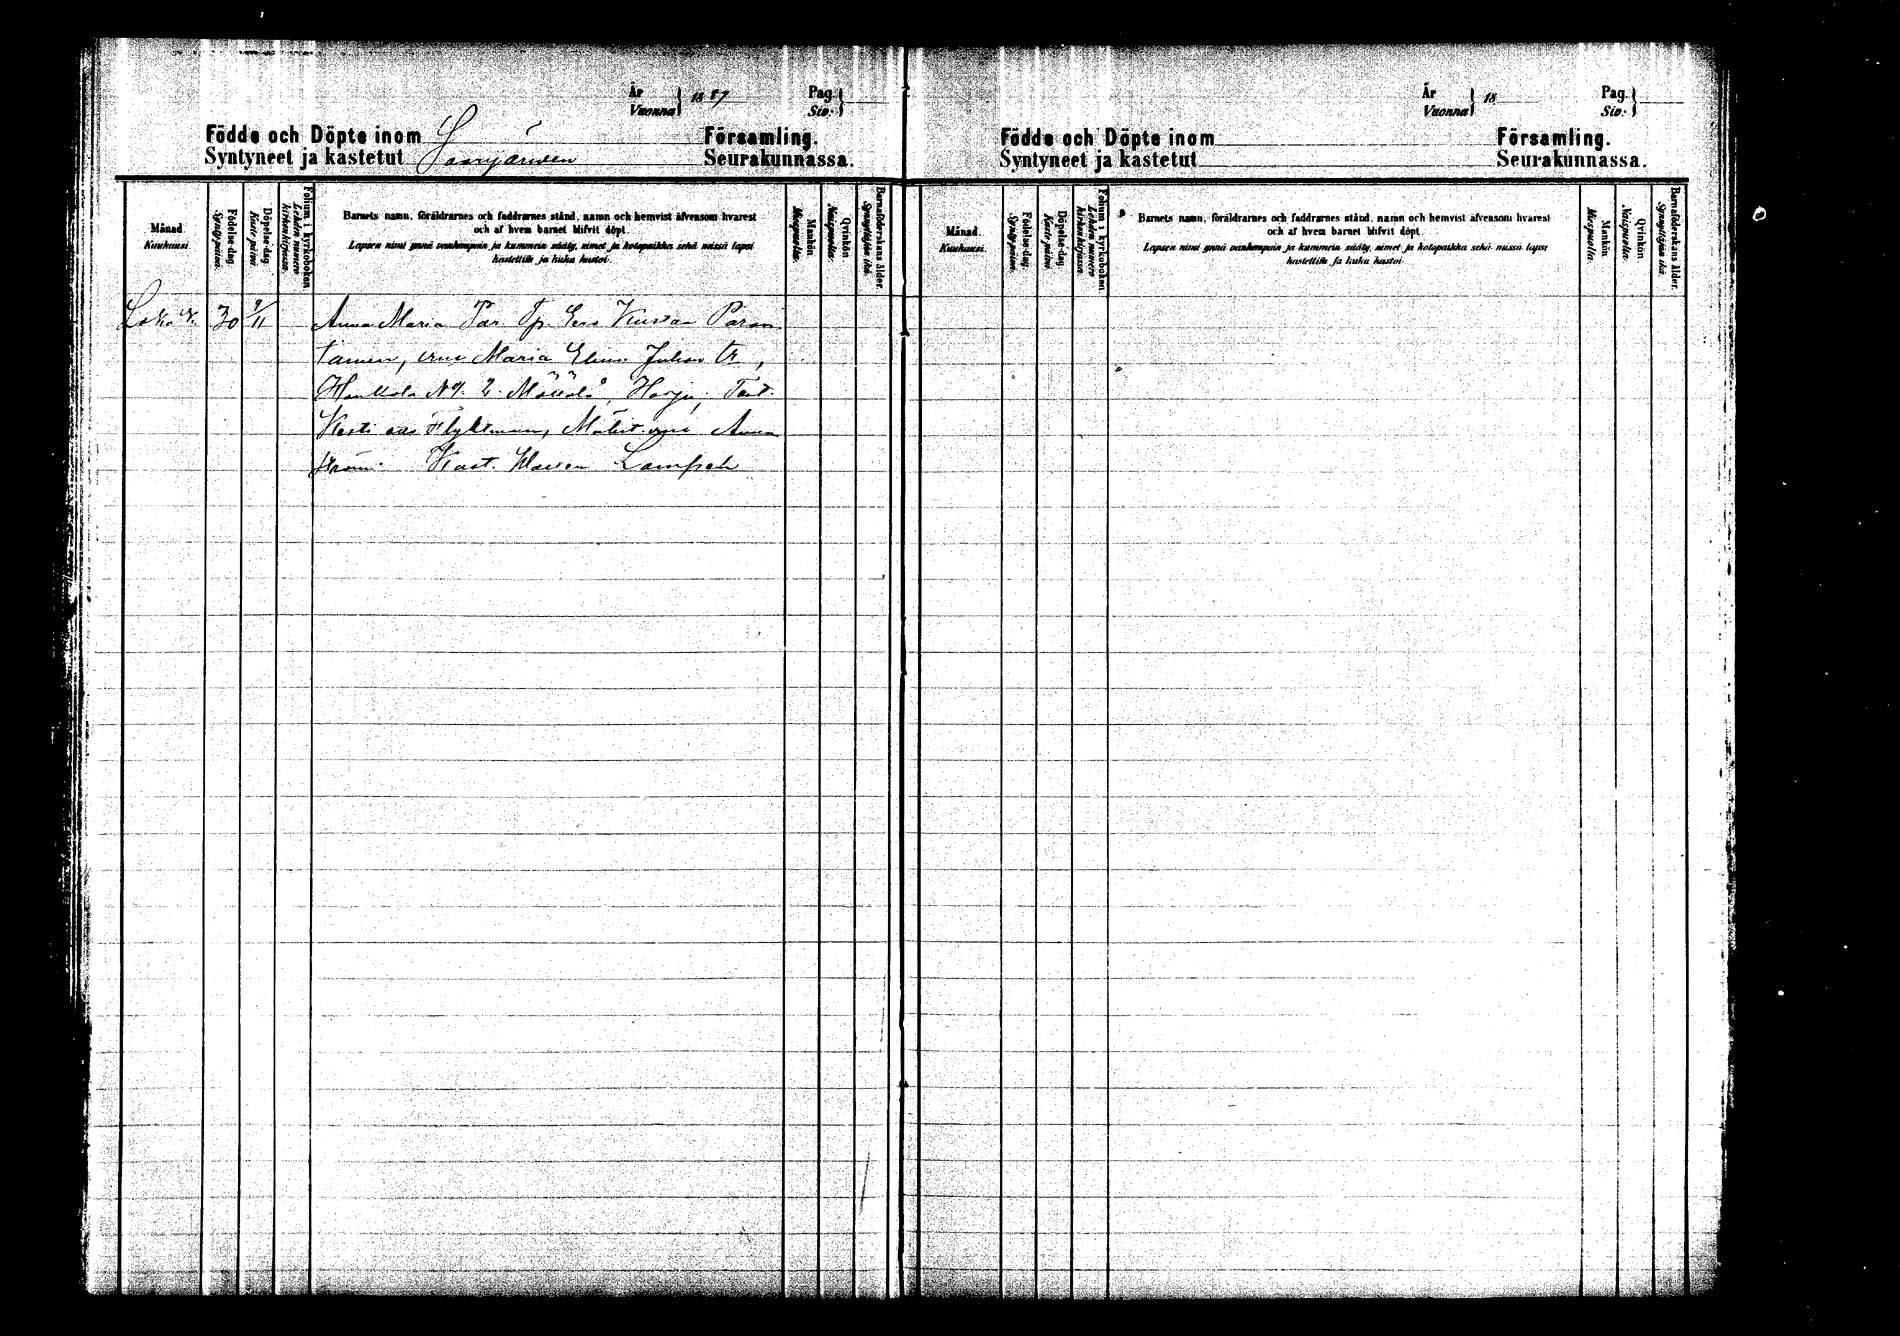 År
Vuonna } 1887
Pag.
Siv. }
Födde och Döpte inom
Syntyneet ja kastetut Saarijärven
Församling.
Seurakunnassa.
Månad.
Kuukausi.
Födelse-dag.
Syntypäivä.
Döpelse-dag.
Kaste-päivä
Folium i kyrkoboken.
Lehden numero
kirkonkirjassa.
Barnets namn, föräldrarnes och faddrarnes stånd, namn och hemvist äfvensom hvarest
och af hvem barnet blifvit döpt.
Lapsen nimi ynnä vanhempain ja kummein sääty, nimet ja kotopaikka sekä missä lapsi
kastettiin ja kuka kastoi.
Mankön.
Miespuolta.
Qvinkön
Naispuolta.
Barnaföderskans ålder.
Synnyttäjän ikä.
Loka k. 30 /11 Anna Maria Kustaa
Maria
Hankola No. 2. Harju, Test.
Anna
Kast.
År
Vuonna } 18
Pag.
Siv. }
Födde och Döpte inom
Syntyneet ja kastetut
Församling.
Seurakunnassa.
Månad.
Kuukausi.
Födelse-dag.
Syntypäivä.
Döpelse-dag
Kaste-päivä
Folium i kyrkoboken.
Lehden numero
kirkonkirjassa.
Barnets namn, föräldrarnes och faddrarnes stånd, namn och hemvist äfvensom hvarest
och af hvem barnet blifvit döpt.
Lapsen nimi ynnä vanhempain ja kummein sääty, nimet ja kotopaikka sekä missä lapsi
kastettiin ja kuka kastoi.
Mankön
Miespuolta.
Qvinkön
Naispuolta.
Barnaföderskans ålder.
Synnyttäjän ikä.